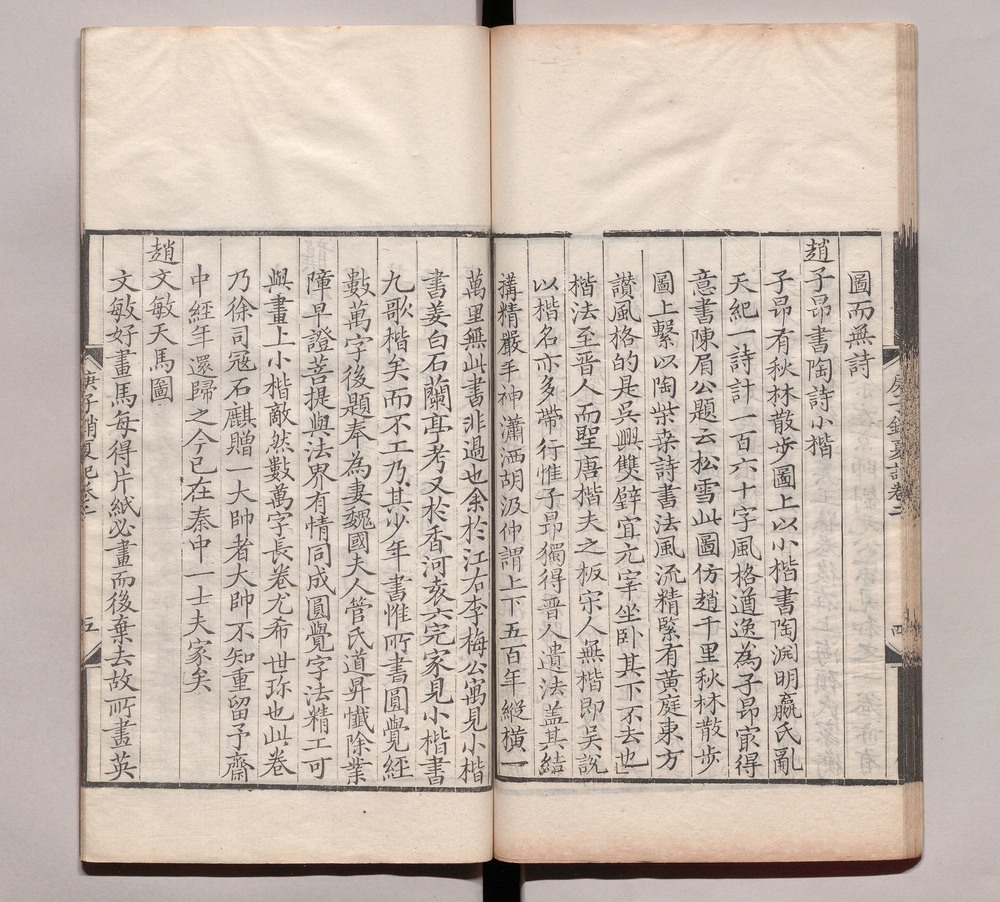 圖而無詩
趙子昂書陶詩小楷
子昂有秋林散步圖上以小楷書陶淵明嬴氏亂
天紀一詩計一百六十字風格遒逸為子昂㝡得
意書陳眉公題云松雪此圖仿趙千里秋林散步
圖上繫以陶柴桑詩書法風流精緊有黃庭東方
讃風格的是吳興雙璧宜元宰坐卧其下不去也
楷法至晉人而聖唐楷失之板宋人無楷即吳說
以楷名亦多帶行惟子昂獨得晉人遺法盖其結
搆精嚴丰神瀟洒胡汲仲謂上下五百年縱橫一
萬里無此書非過也余於江右李梅公寓見小楷
書姜白石蘭亭考又於香河袁六完家見小楷書
九歌楷矣而不工乃其少年書惟所書圓覺經
數萬字後題奉為妻魏國夫人管氏道昇懺除業
障早證菩提與法界有情同成圓覺字法精工可
與畫上小楷敵然數萬字長卷尤希世珎也此卷
乃徐司冦石麒贈一大帥者大帥不知重留予齋
中經年還歸之今已在秦中一士夫家矣
趙文敏天馬圖
文敏好畫馬每得片紙必畫而後棄去故所畫英
庚子銷夏記卷二
五